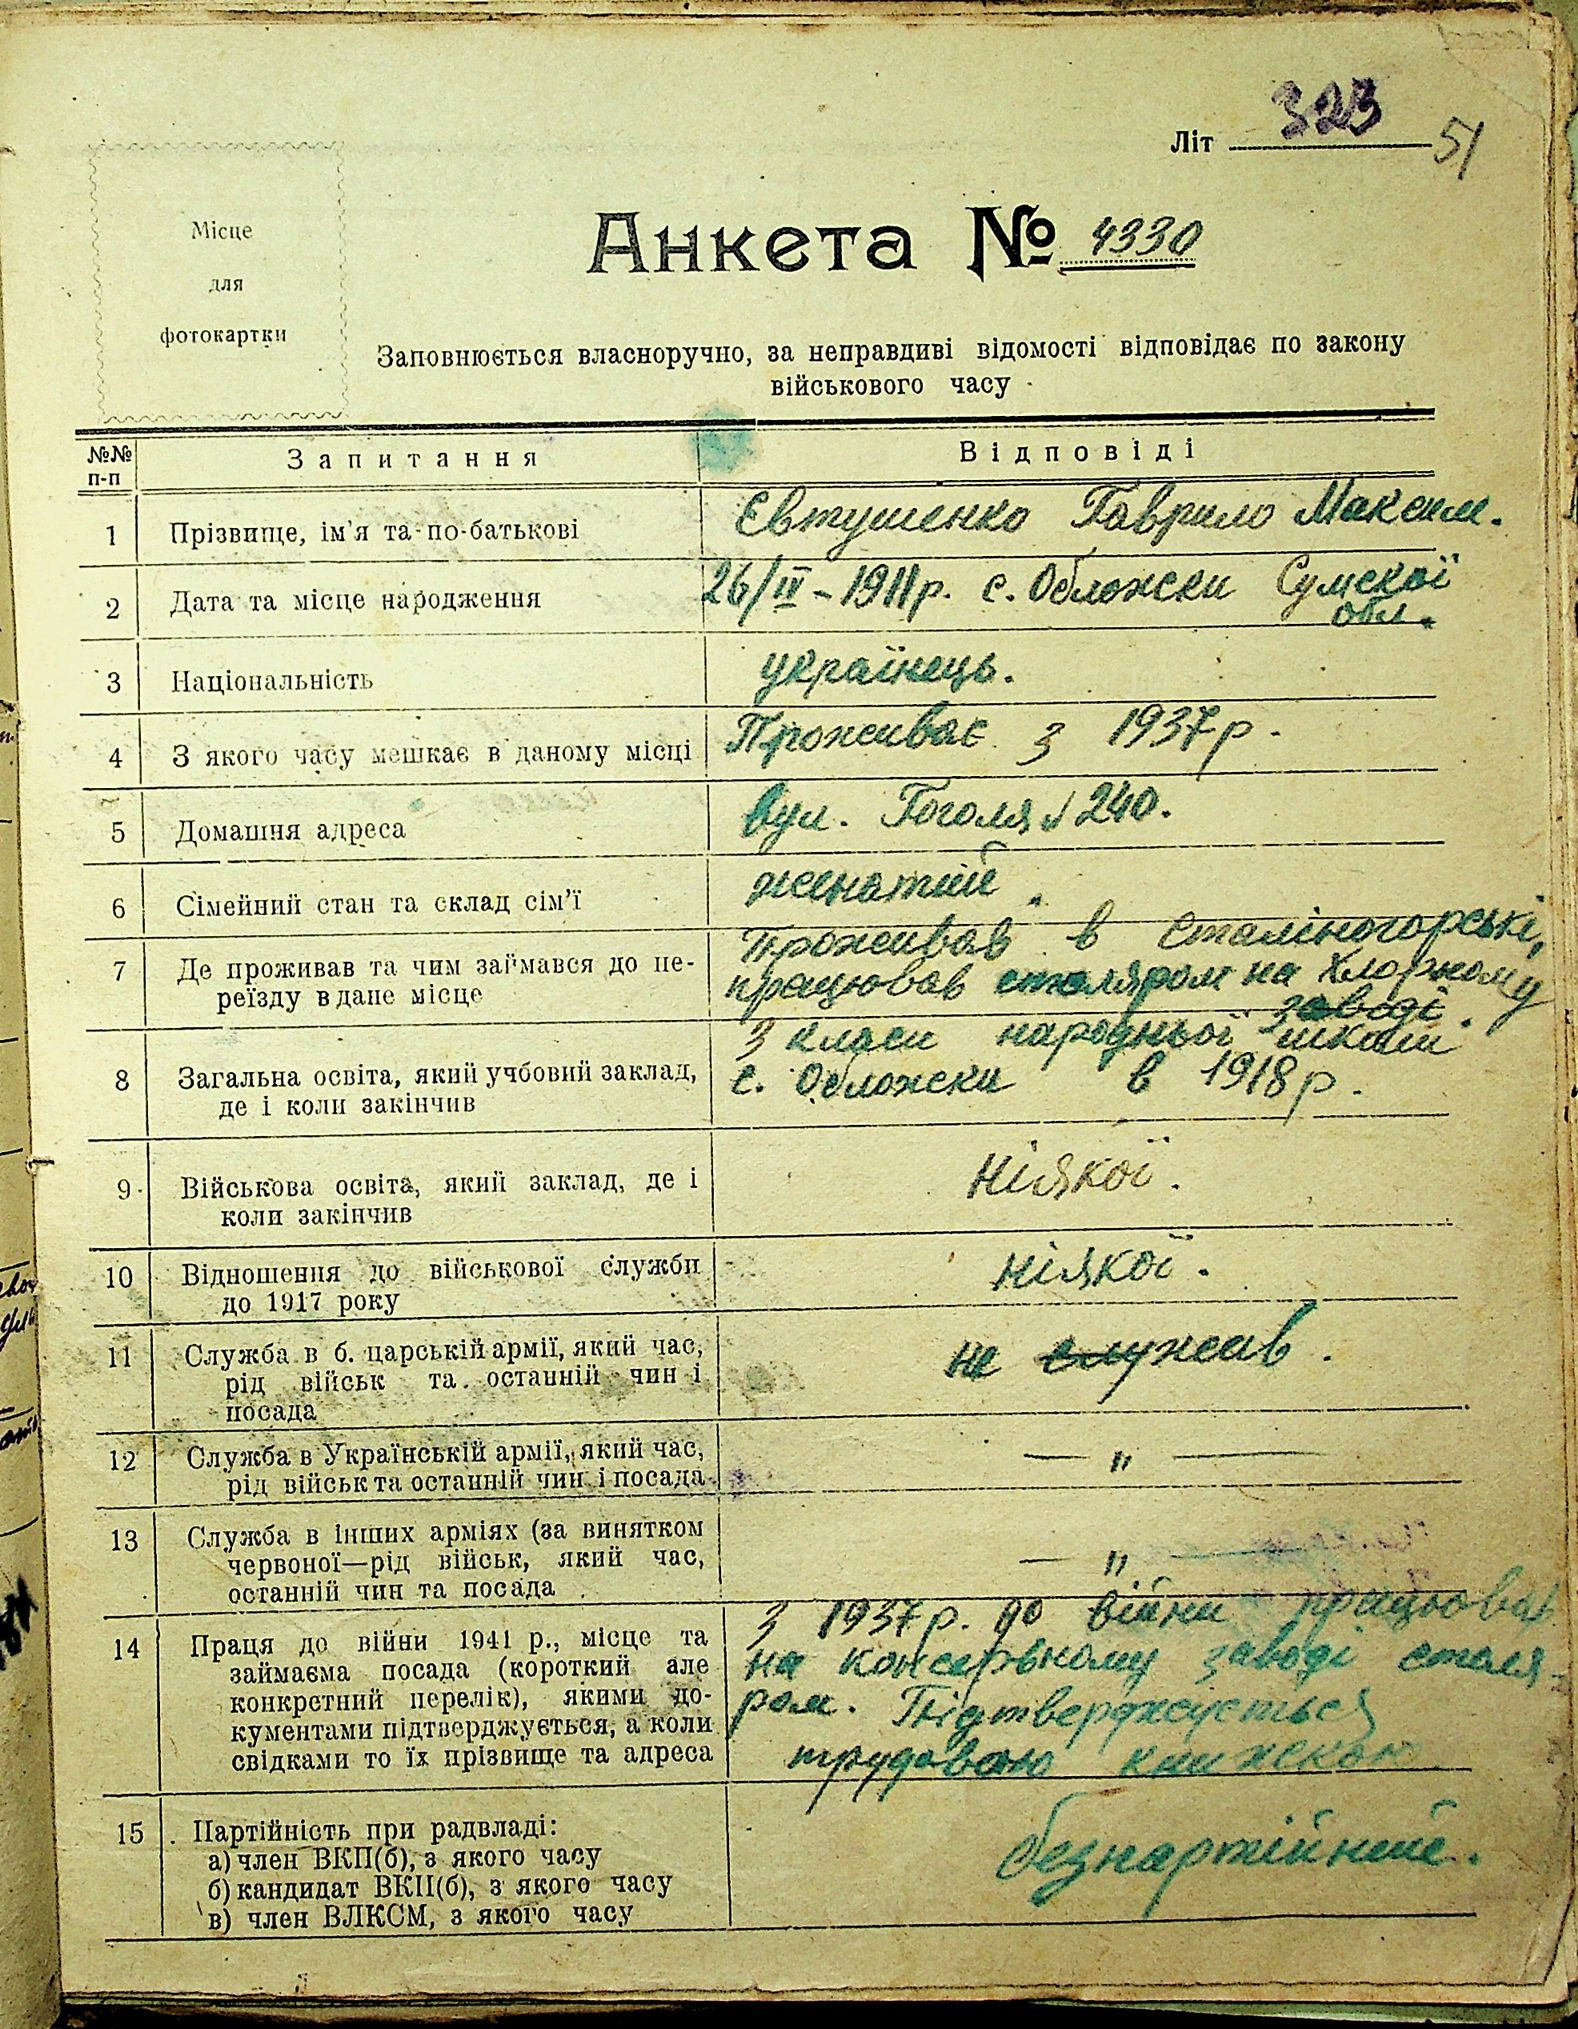 Літ 323 51
Місце
для
фотокартки
Анкета № 4330
Заповнюється власноручно, за неправдиві відомості відповідає по закону
військового часу
№№ п-п Запитання Відповіді
1 Прізвище, ім'я та по-батькові Євтушенко Гаврило Максим.
2 Дата та місце народження 26/IV - 1911 р. с. Обложки Сумскої
обл.
3 Національність українець.
4 З якого часу мешкає в даному місці Проживає з 1937 р.
5 Домашня адреса вул. Гоголя № 240.
6 Сімейний стан та склад сім'ї женатий.
7 Де проживав та чим займався до пе-
реїзду в дане місце
Проживав в Сталіногорські,
працював столяром на Хлорному
заводі.
8 Загальна освіта, який учбовий заклад,
де і коли закінчив
3 класи народньої школи
с. Обложки в 1918 р.
9 Військова освіта, який заклад, де і
коли закінчив
Ніякої.
10 Відношення до військової служби
до 1917 року
ніякої.
11 Служба в б. царській армії, який час,
рід військ та останній чин і
посада
не служив.
12 Служба в Українській армії, який час,
рід військ та останній чин і посада
— " —
13 Служба в інших арміях (за винятком
червоної—рід військ, який час,
останній чин та посада
— " —
14 Праця до війни 1941 р., місце та
займаєма посада (короткий але
конкретний перелік), якими до-
кументами підтверджується, а коли
свідками то їх прізвище та адреса
З 1937 р. до війни працював
на консервному заводі столя-
ром. Підтверджується
трудовою книжкою
15 Партійність при радвладі:
а) член ВКП(б), з якого часу
б) кандидат ВКП(б), з якого часу
в) член ВЛКСМ, з якого часу
безпартійний.